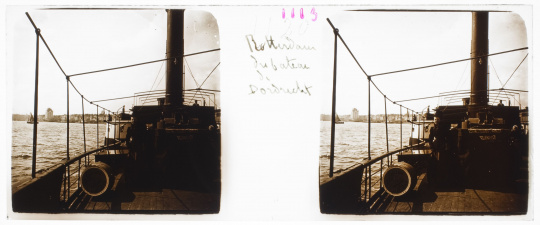 1113
Rotterdam
du bateau
de
Dordrecht